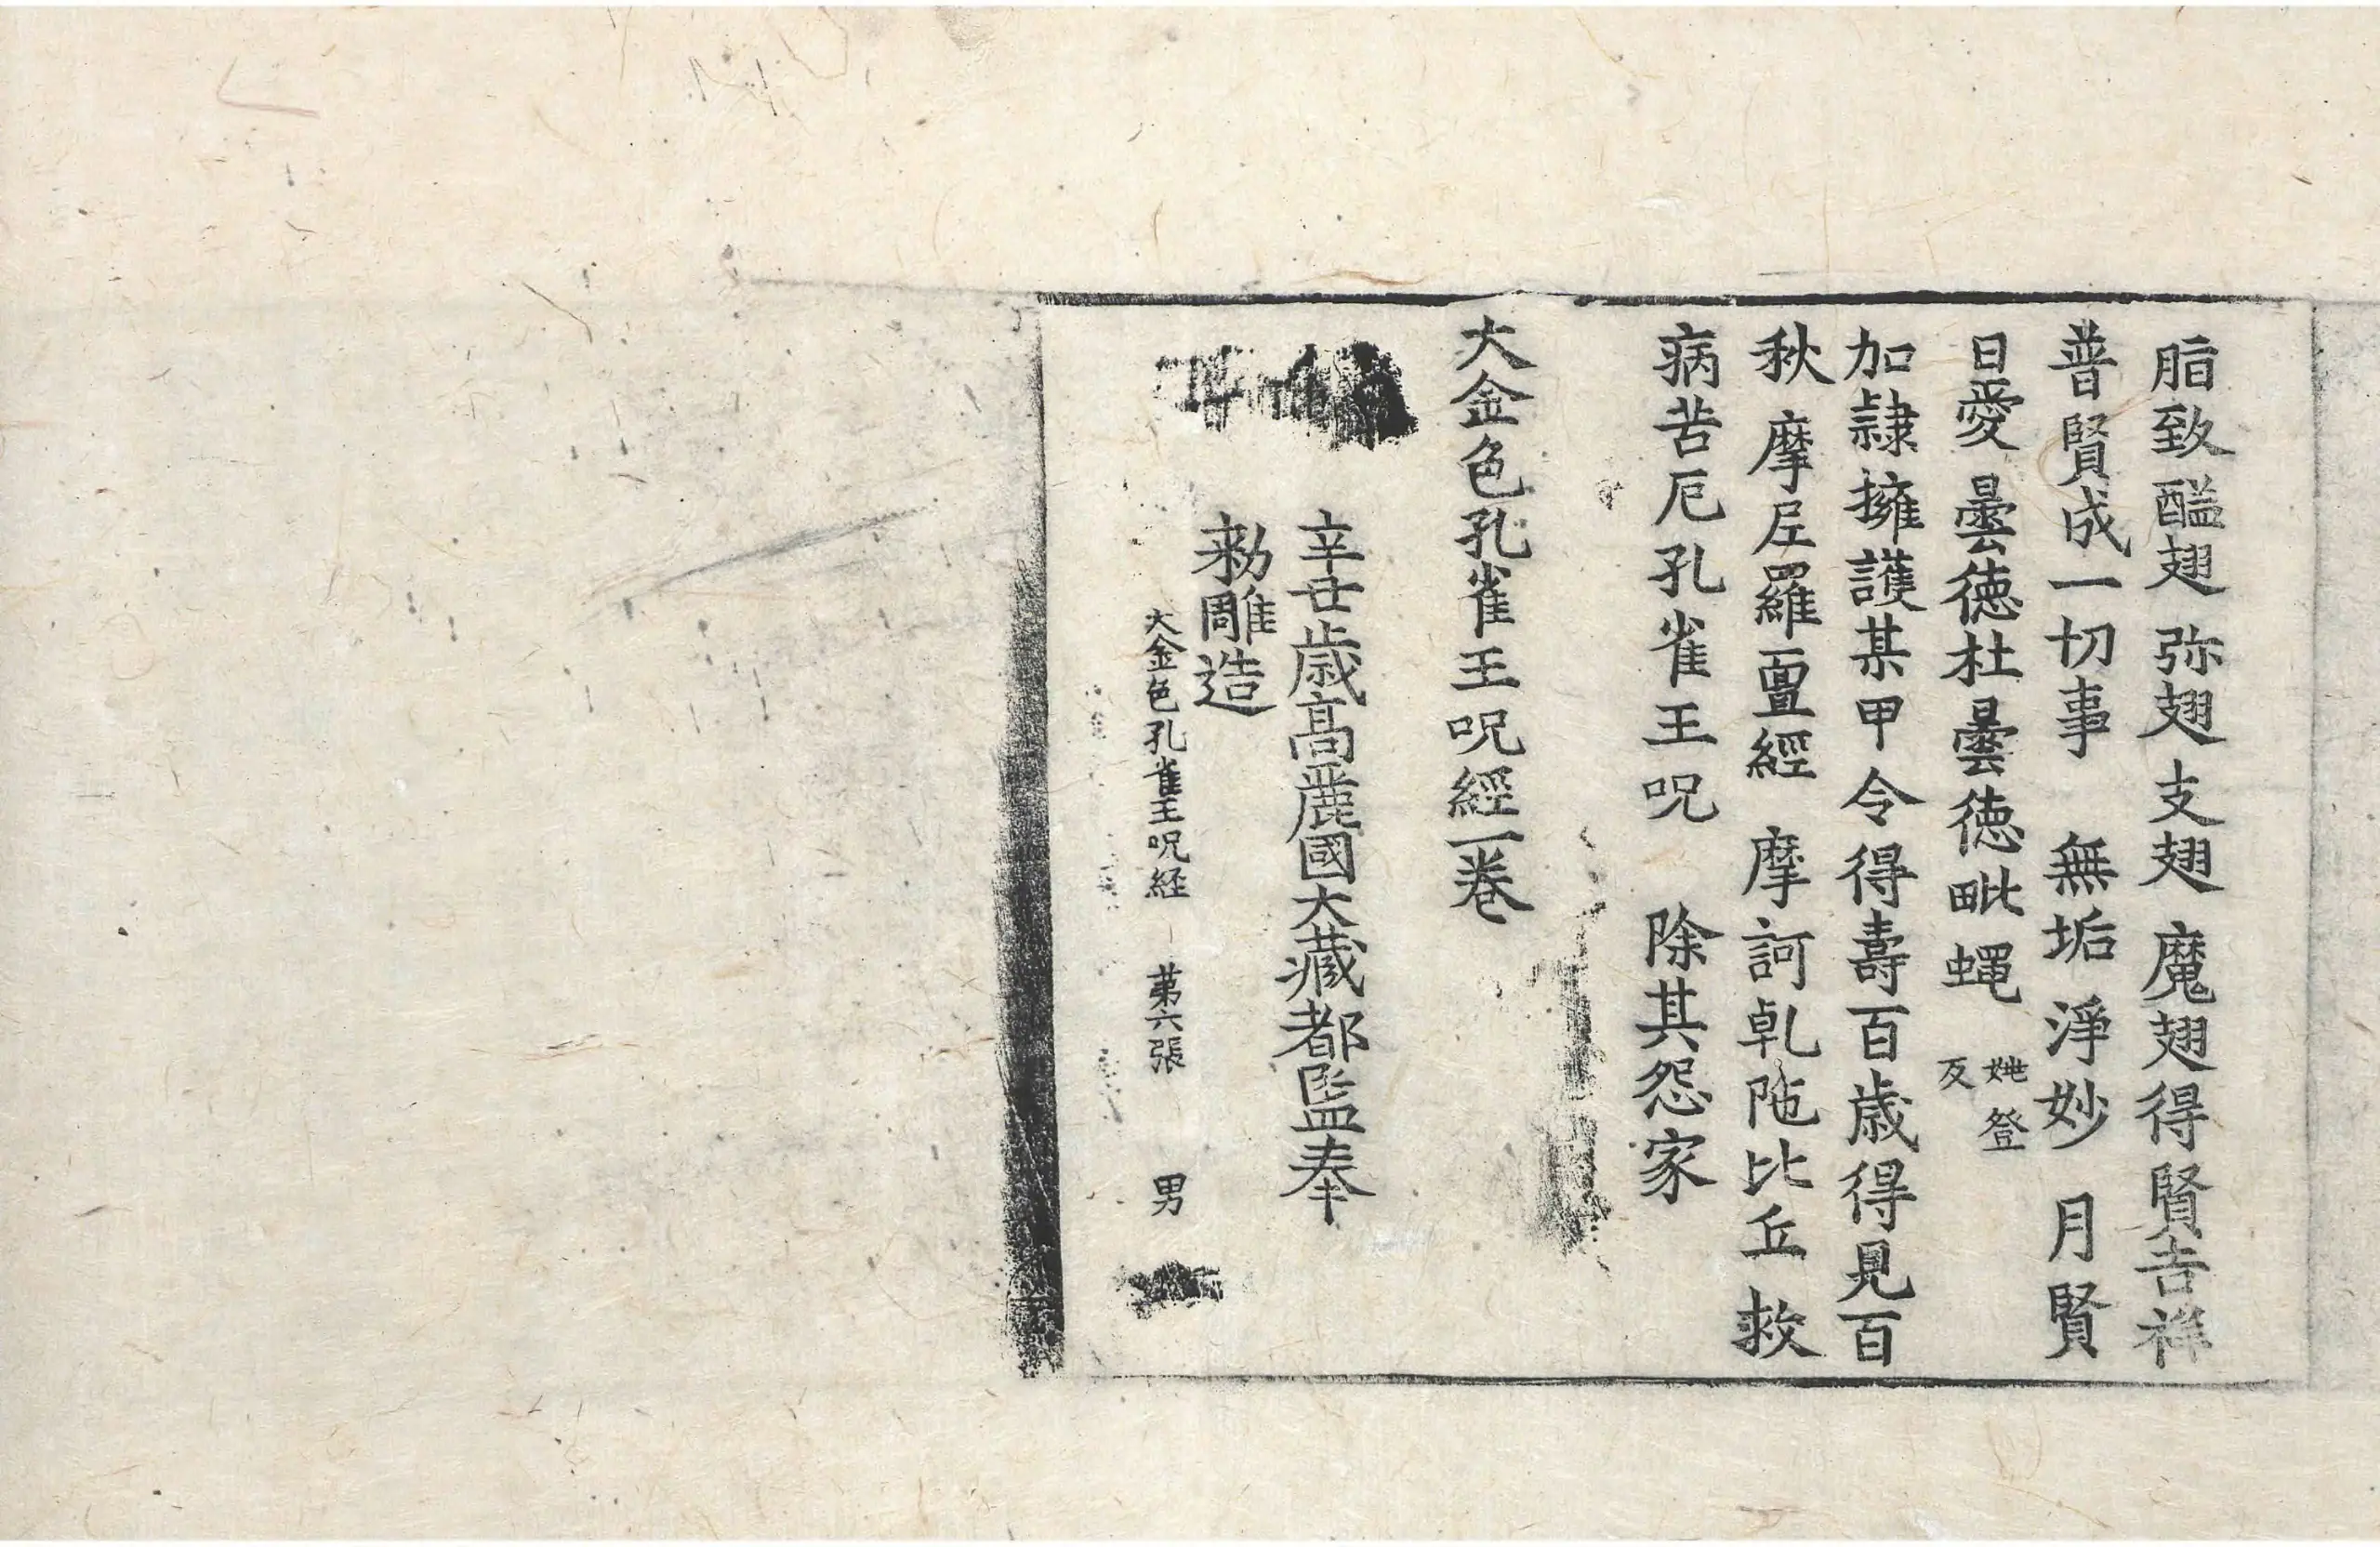 脂致醯翅 弥翅 支翅 魔翅得賢吉祥
普賢成一切事 無垢 淨妙 月賢
日愛 曇徳杜曇徳毗蝿 姚登反
加隷擁護某甲令得壽百歳得見百
秋 摩𡰱羅亶經 摩訶乹陁比丘救
病苦厄孔雀王呪 除其怨家
大金色孔雀王呪經一卷
辛丑歳髙麗國大藏都監奉
勑雕造
大金色孔雀王呪経 第六張 男